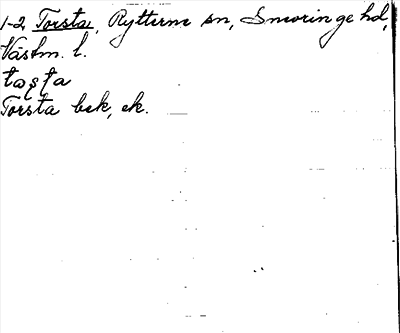 1-2 Torsta, Rytterne sn, Snevringe hd,
Västm. l.
tas̨ta
Torsta bsk, ek.